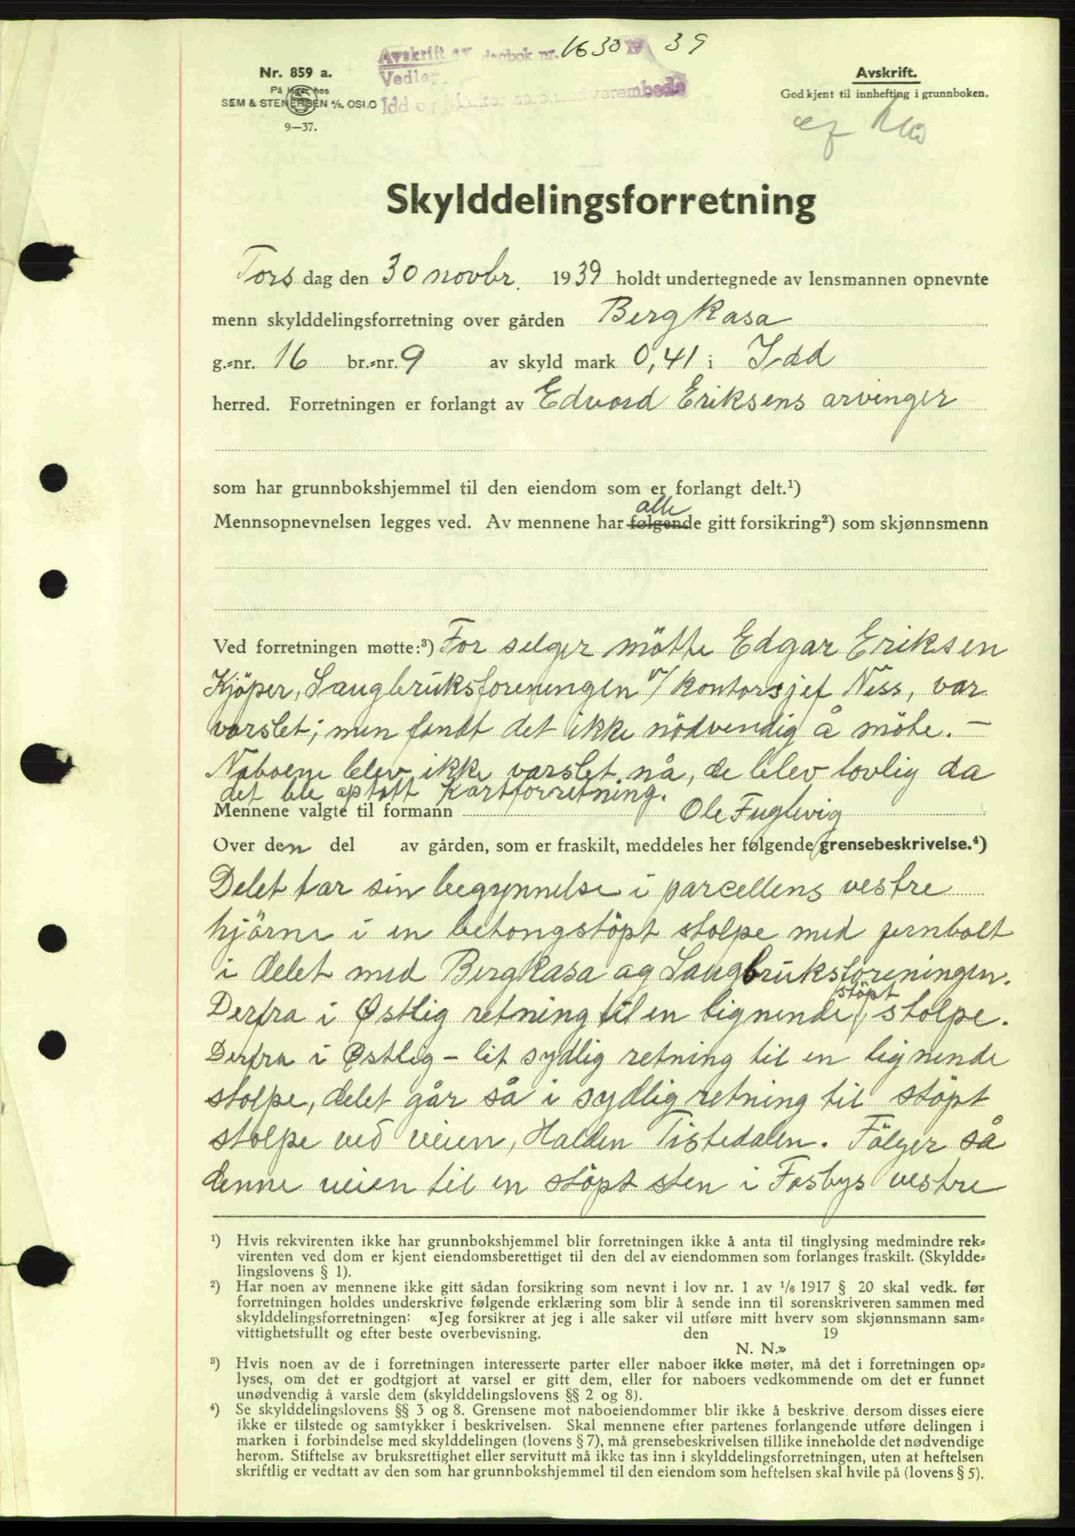 Avskrift av dagbok nr. 1630 19 39
Vedlegg
Idd og Marker sorenskriverembede
Nr. 859 a.
På lager hos
SEM & STENERSEN A/S, OSLO
9—37.
Avskrift.
Godkjent til innhefting i grunnboken.
Skylddelingsforretning
Tors dag den 30 novbr. 1939 holdt undertegnede av lensmannen opnevnte
menn skylddelingsforretning over gården Bergkasa
g.-nr. 16 br.-nr. 9 av skyld mark 0,41 i Idd
herred. Forretningen er forlangt av Edvard Eriksens arvinger
som har grunnbokshjemmel til den eiendom som er forlangt delt.¹)
Mennsopnevnelsen legges ved. Av mennene har følgende alle gitt forsikring²) som skjønnsmenn
Ved forretningen møtte:³) For selger mötte Edgar Eriksen
Kjöper, Saugbruksforeningen v/ kontorsjef Ness, var
varslet; men fandt det ikke nödvendig å möte. —
Naboene blev ikke varslet nå, de blev lovlig da
det ble optatt Kartforretning.
Mennene valgte til formann Ole Fuglevig
Over den del av gården, som er fraskilt, meddeles her følgende grensebeskrivelse.⁴)
Delet tar sin begynnelse i parcellens vestre
hjörne i en betongstöpt stolpe med jernbolt
i delet med Bergkasa og Saugbruksforeningen.
Derfra i Østlig retning til en lignende stöpt stolpe.
Derfra i Østlig – lit sydlig retning til en lignende
stolpe, delet går så i sydlig retning til stöpt
stolpe ved veien, Halden Tistedalen. Fölger så
denne veien til en stöpt sten i Fosbys vestre
¹) Hvis rekvirenten ikke har grunnbokshjemmel blir forretningen ikke å anta til tinglysing medmindre rek-
virenten ved dom er kjent eiendomsberettiget til den del av eiendommen som forlanges fraskilt. (Skyldde-
lingslovens § 1).
²) Har noen av mennene ikke gitt sådan forsikring som nevnt i lov nr. 1 av 1/8 1917 § 20 skal vedk. før
forretningen holdes underskrive følgende erklæring som blir å sende inn til sorenskriveren sammen med
skylddelingsforretningen: «Jeg forsikrer at jeg i alle saker vil utføre mitt hverv som skjønnsmann sam-
vittighetsfullt og efter beste overbevisning. den 19
N. N.»
³) Hvis noen av de i forretningen interesserte parter eller naboer ikke møter, må det i forretningen op-
lyses, om det er godtgjort at varsel er gitt dem, eller for naboers vedkommende om det er funnet
unødvendig å varsle dem (skylddelingslovens §§ 2 og 8).
⁴) Se skylddelingslovens §§ 3 og 8. Grensene mot naboeiendommer blir ikke å beskrive dersom disses eiere
ikke er tilstede og samtykker i beskrivelsen. Skal mennene efter partenes forlangende utføre delingen i
marken i forbindelse med skylddelingen (lovens § 7), må grensebeskrivelsen tillike inneholde det nødvendige
herom. Stiftelse av bruksrettighet eller servitutt må ikke tas inn i skylddelingsforretningen, uten at heftelsen
skriftlig er vedtatt av den som har grunnbokshjemmel til den eiendom som heftelsen skal hvile på (lovens § 5).